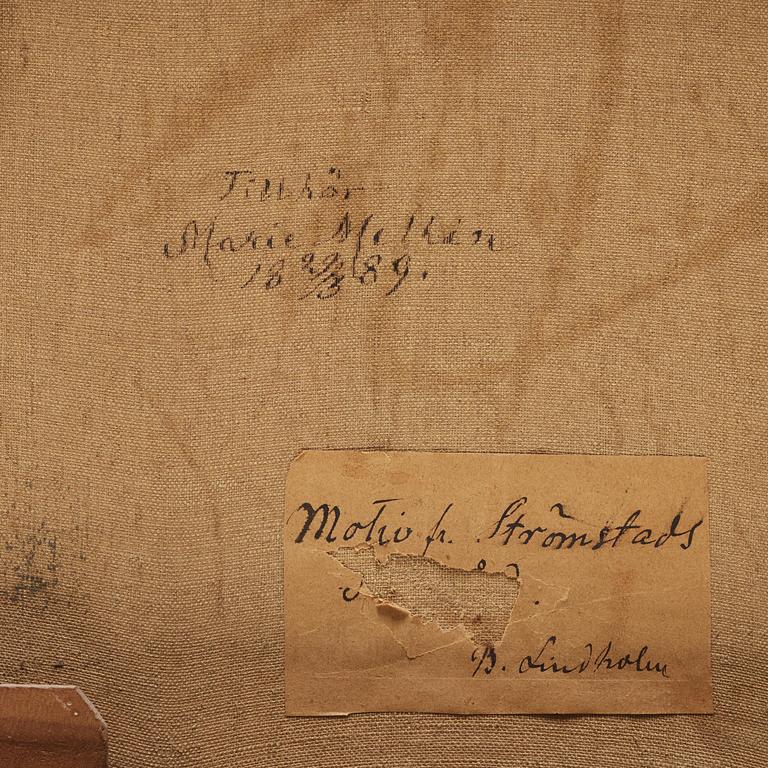 Tillhör
Marie Mellén
18 29/3 89.
Motiv fr. Strömstads
B. Lindholm